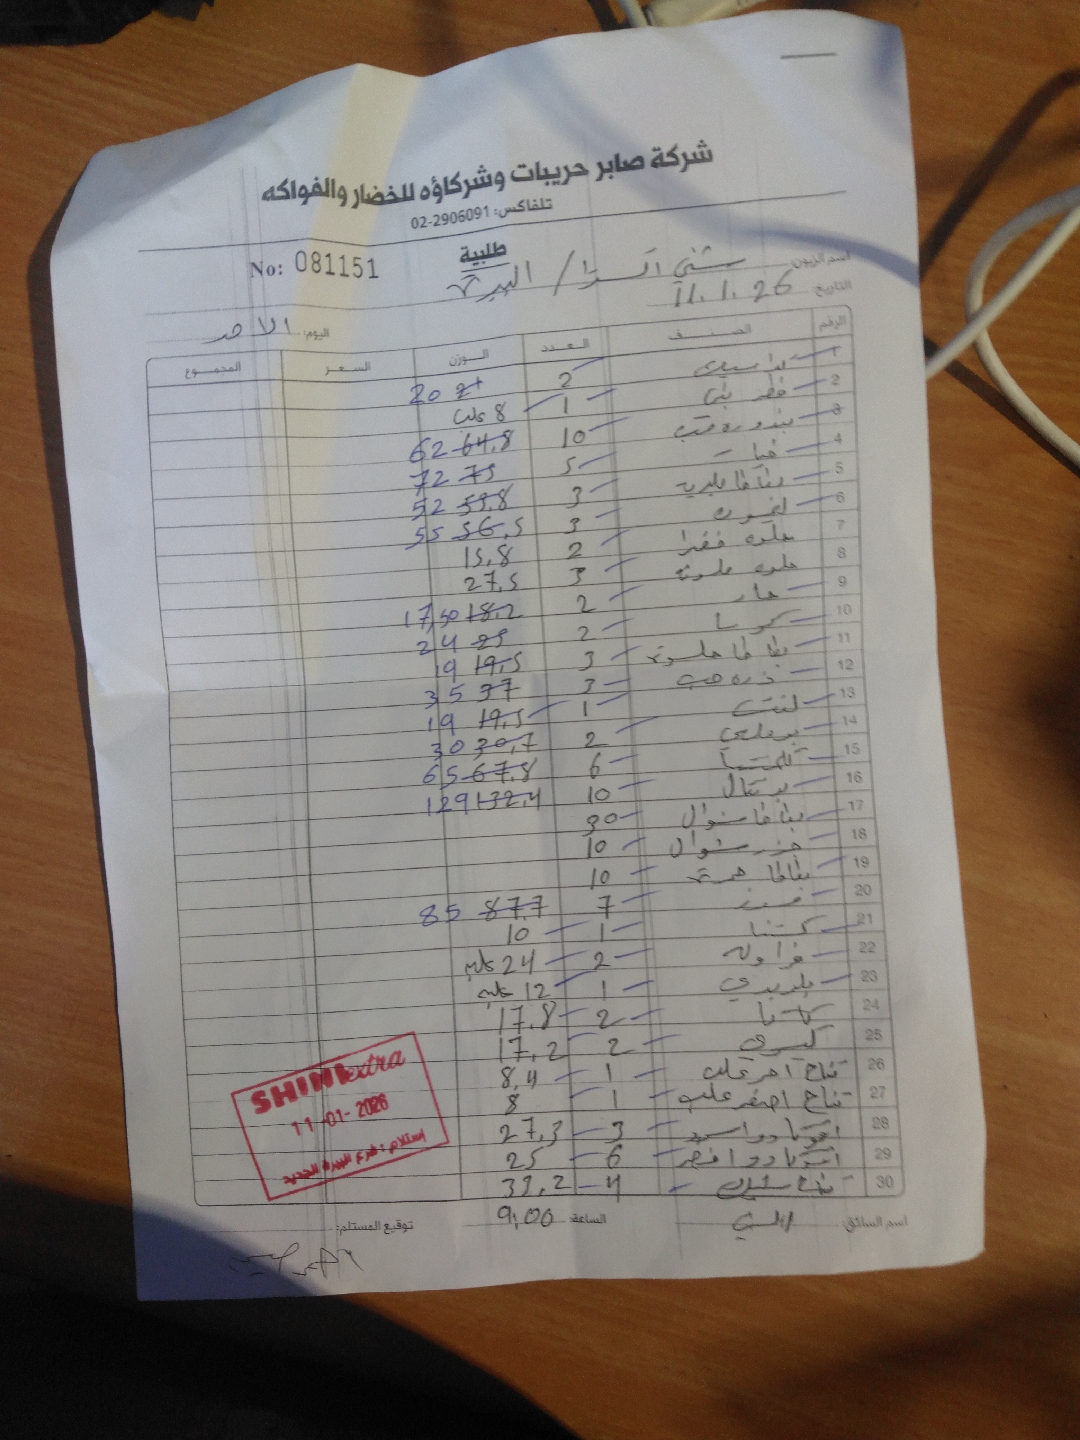 شركة صابر حريبات وشركاؤه للخضار والفواكه
تلفاكس: 02-2906091
طلبية
No: 081151
اسم الزبون: شني اكسترا / البيرة
التاريخ: 11.1.26
اليوم: الاحد
الرقم الصنف العدد الوزن السعر المجموع
1 2 21 20
2 فطر بني 1 8 علب
3 بندوره حب 10 64,8 62
4 خيار 5 75 72
5 3 53,8 52
6 ليمون 3 56,5 55
7 حلوه خضرا 2 15,8
8 حلوه ملونه 3 27,5
9 حار 2 18,2 17,50
10 كوسا 2 25 24
11 بطاطا حلوة 3 19,5 19
12 ذره حب 3 37 35
13 لفت 1 19,5 19
14 بوملي 2 30,7 30
15 كلمنتينا 6 67,8 65
16 برتقال 10 132,4 129
17 بطاطا شوال 30
18 جزر شوال 10
19 بطاطا 10
20 موز 7 87,7 85
21 كستنا 1 10
22 فراوله 2 24 علبه
23 بلوبيري 1 12 علبه
24 كاكا 2 17,8
25 كيوي 2 17,2
26 تفاح احمر علب 1 8,4
27 تفاح اصفر علب 1 8
28 افوكادو اسود 3 27,3
29 افوكادو اخضر 6 25
30 4 33,2
اسم السائق:
الساعة: 9,00
توقيع المستلم:
SHINI extra
11-01-2026
إستلام: فرع البيرة الجديد